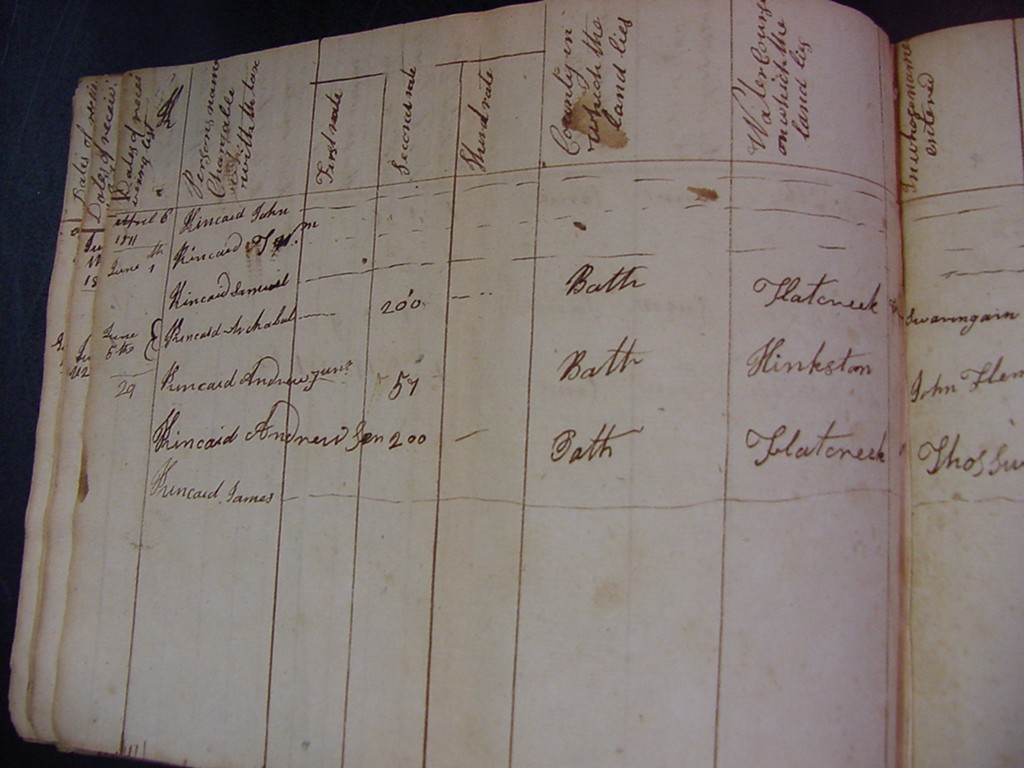 Dates of recei
Dates of recei
Dates of recei
iveing list
Persons, name
Chargable
with the tax
First rate
Second rate
Third rate
County in
which the
land lies
Water Course
on which the
land lies
In whose name
entered
April 6 Kincaid John
1811
June 1 Kincaid
Kincaid Samuel
June 5th Kincaid Archabal 200 Bath Flatcreek Swaringain
29 Kincaid Andrew junr 57 Bath Hinkston John Flem
Kincaid Andrew Sen 200 Bath Flatcreek Thos Sw
Kincaid James